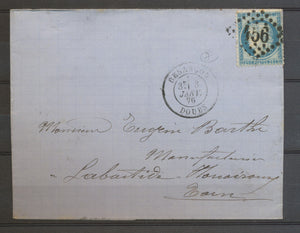 456
BESANÇON
JANV.
76
DOUBS
Monsieur Eugène Barthe
Manufacturier
Labastide-Rouairoux
Tarn